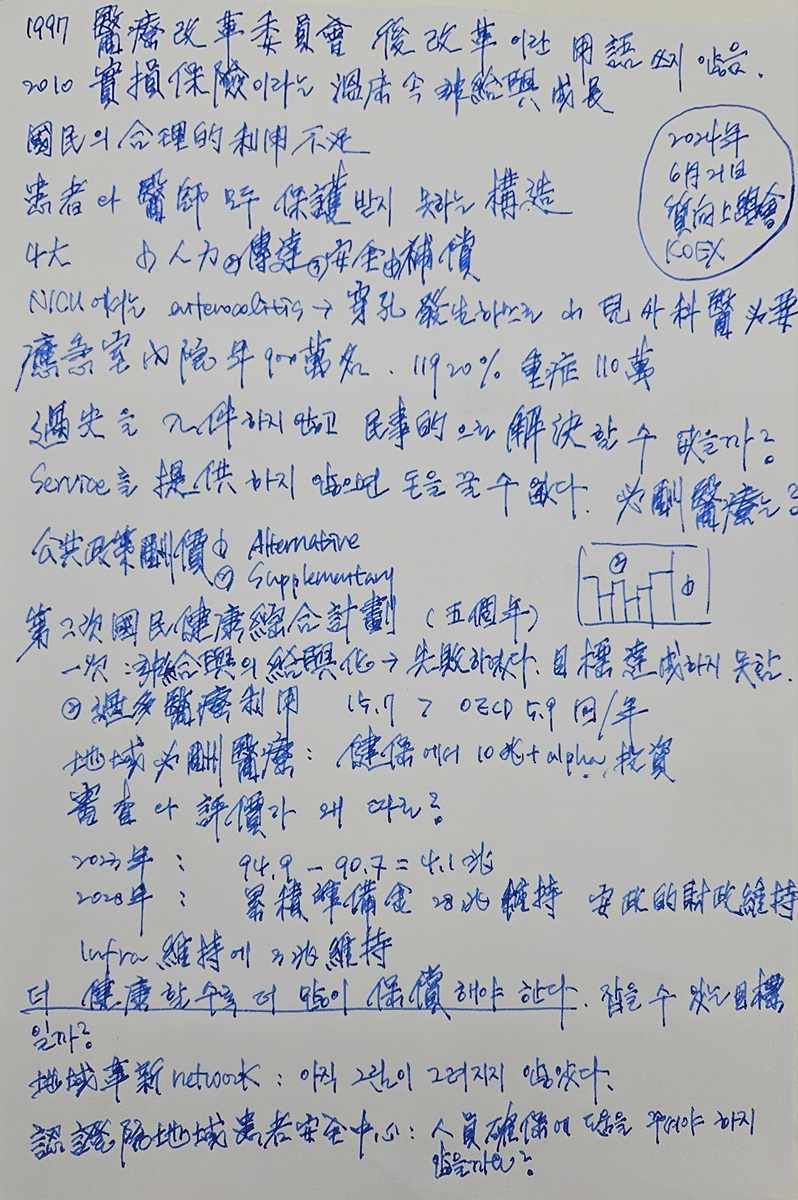 1997 醫療改革委員會 後 改革이란 用語 쓰지 않음.
2010 實損保險이라는 溫床 속 非給與 成長
國民의 合理的 利用 不足
2024年
6月 21日
質向上學會
KOEX
患者와 醫師 모두 保護받지 못하는 構造
4大 ① 人力 ② 傳達 ③ 安全 ④ 補償
NICU에서는 enterocolitis → 穿孔 發生하므로 小兒外科醫 必要
應急室 內院 年 900萬名. 119 20% 重症 110萬
過失을 立件하지 않고 民事的으로 解決할 수 없을까?
Service를 提供하지 않으면 돈을 꿀 수 없다. 必酬醫療는?
公共政策酬價 ① Alternative
② Supplementary
② ①
第二次國民健康綜合計劃 (五個年)
一次 : 非給與의 給與化 → 失敗하였다. 目標達成하지 못함.
② 過多醫療利用 15.7 > OECD 5.9 回/年
地域必酬醫療 : 健保에서 10兆 + alpha 投資
審査와 評價가 왜 따로?
2023年 : 94.9 - 90.7 = 4.1兆
2028年 : 累積準備金 28兆 維持 安政的 財政維持
Infra 維持에 3兆 維持
더 健康할수록 더 많이 保償해야 한다. 잡을 수 있는 目標
일까?
地域革新 network : 아직 그림이 그려지지 않았다.
認證院地域患者安全中心 : 人員確保에 도움을 주어야 하지
않을까요?